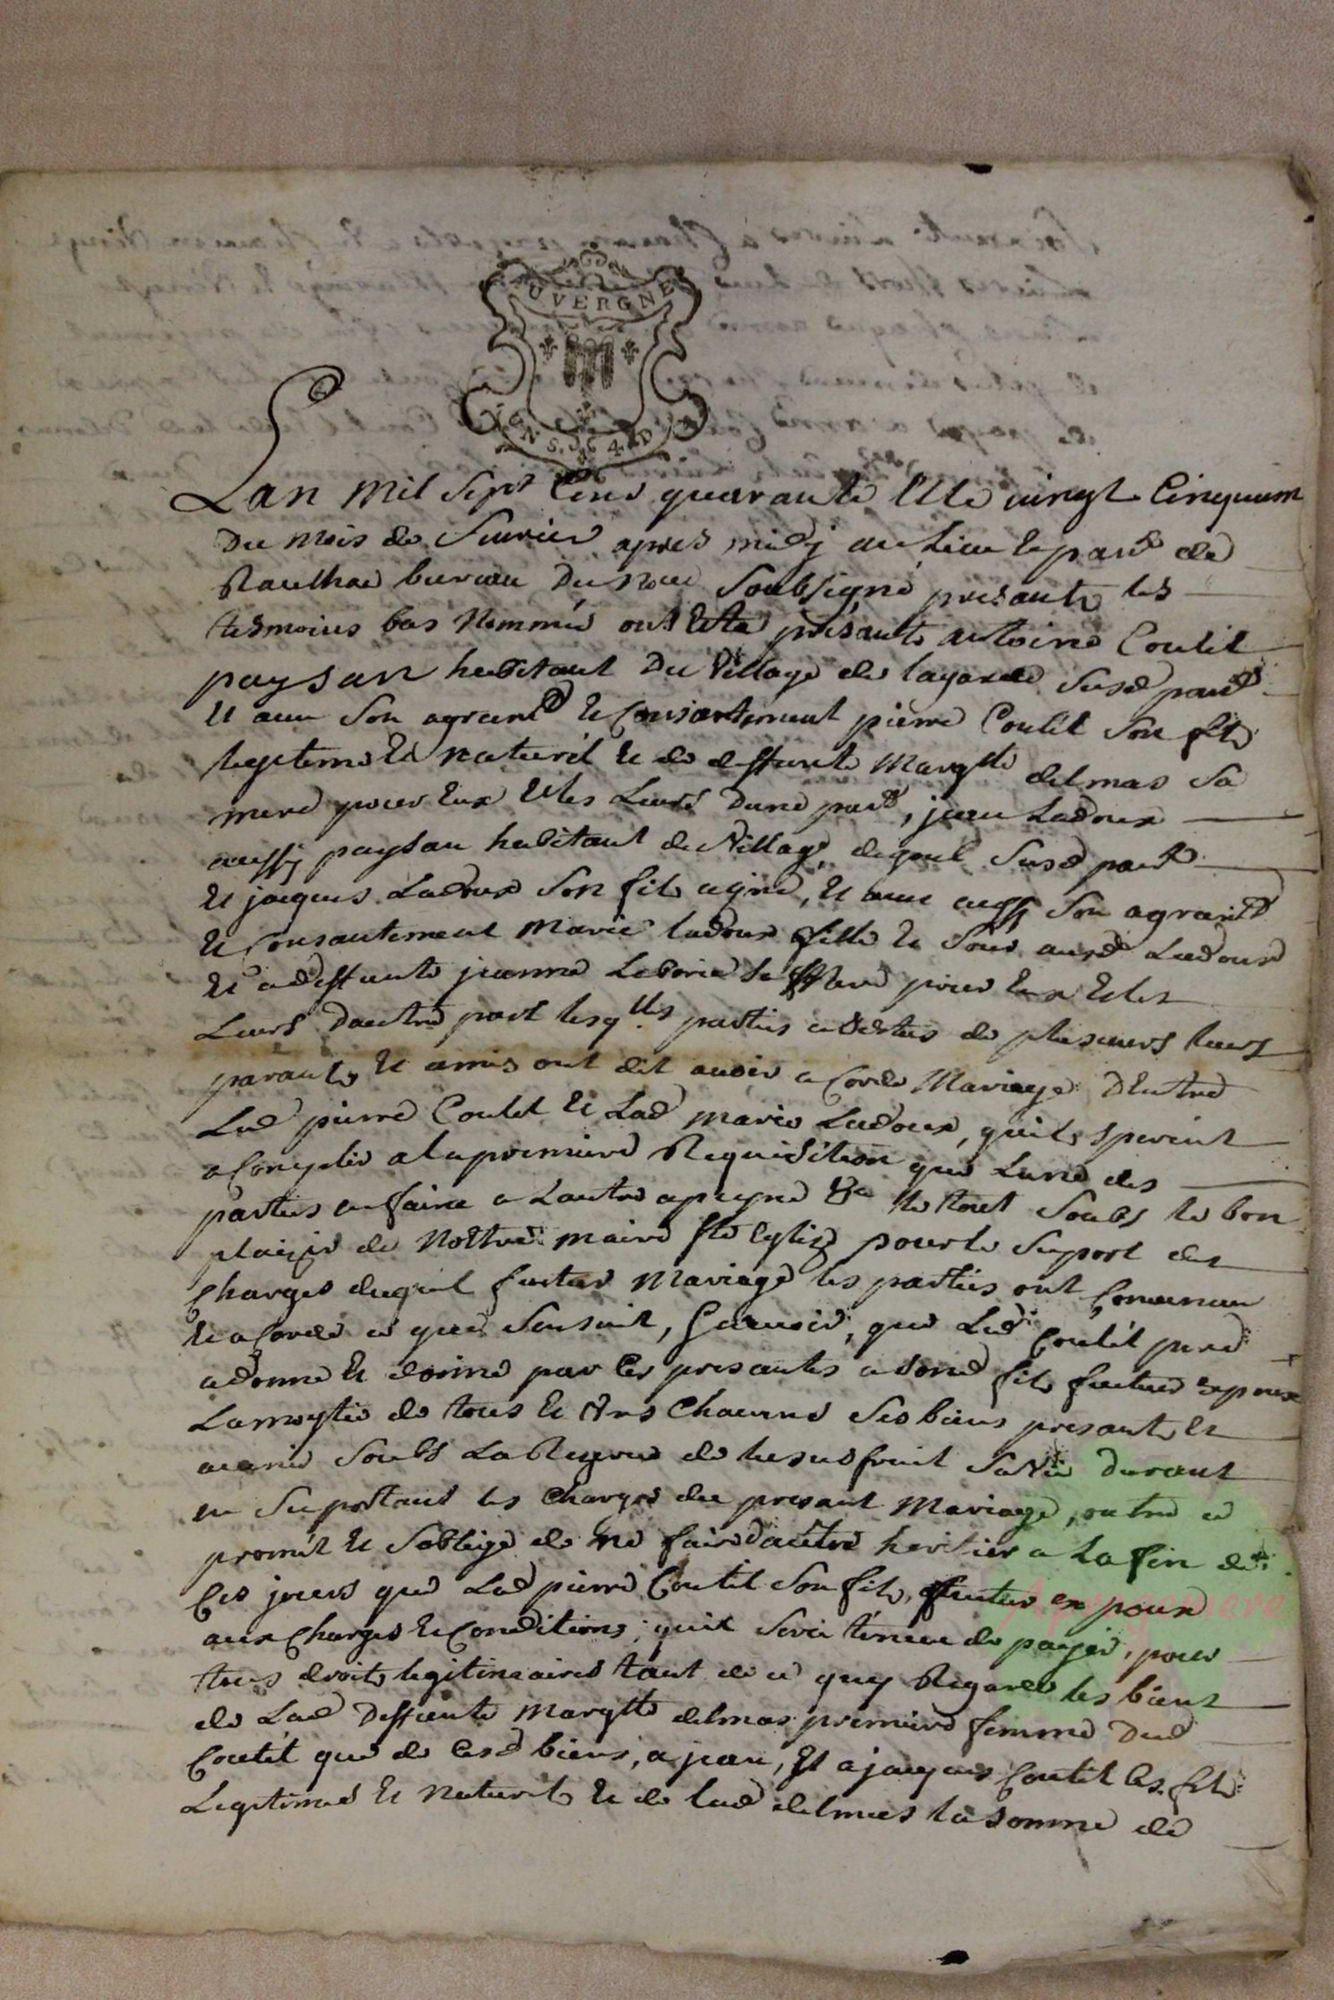 UVERGNE
GEN S. 1 S. 4 D
Lan mil sept Cens quarante Et le vingt Cinquiem
Du mois de fevrier apres midj au Lieu & parr.e de
Raulhac bureau Du no.re Soubsigné presants les
tesmoins bas Nommés ont Esté présants antoine Coutel
paysan habitant Du Village de lagarde susd parr.e
Et avec son agrem.t & Consantement pierre Coutel Son fils
legitime Et naturel & de deffunte Margtte delmas sa
mere pour Eux Et les Leurs dune part, jean Ladoux
aussj paysan habitant du Village susd parr.e
Et jacques Ladoux Son fils ayné, Et avec aussj Son agram.t
Et Consantement Marie ladoux fille & Sœur ausd Ladoux
Et a deffunte jeanne Laborie sa Mere pour Eux Et les
Leurs Dautre part lesq.lles parties assistées de plusieurs leurs
parants Et amis ont dit avoir acordé Mariage DEntre
Led pierre Coutel Et Lad marie Ladoux, quils sperent
acomplir a la premiere Requisition que Lune des
parties en faira a Lautre a peyne &a le tout Soubs le bon
plaizir de Nottre maire S.te Eglize pour le suport des
Charges duquel futur Mariage les parties ont Convenu
Et acordé ce que Sensuit, Scavoir, que Led Coutel pere
a donné Et donne par Ces presantes a sond fils futur expoux
La moytié de tous Et Uns Chacuns Ses biens presants Et
avenir Soubs La Reserve de Lusufruit Sa Vie Durant
en Suportant les Charges du presant Mariage, outre ce
promet Et Soblige de ne faire dautre heritier a La fin de
Ces jours que Led pierre Coutel Son fils, futur expoux
aux Charges & Conditions quil sera tenu de payer, pour
tous droits legitimaires tant de ce quy Regarde les biens
de Lad Deffunte Margtte delmas premiere femme Dud
Coutel que de Cesd biens, a jean, Et a jacques Coutel Ces fils
Legitimes Et Naturels Et de lad delmas la somme de